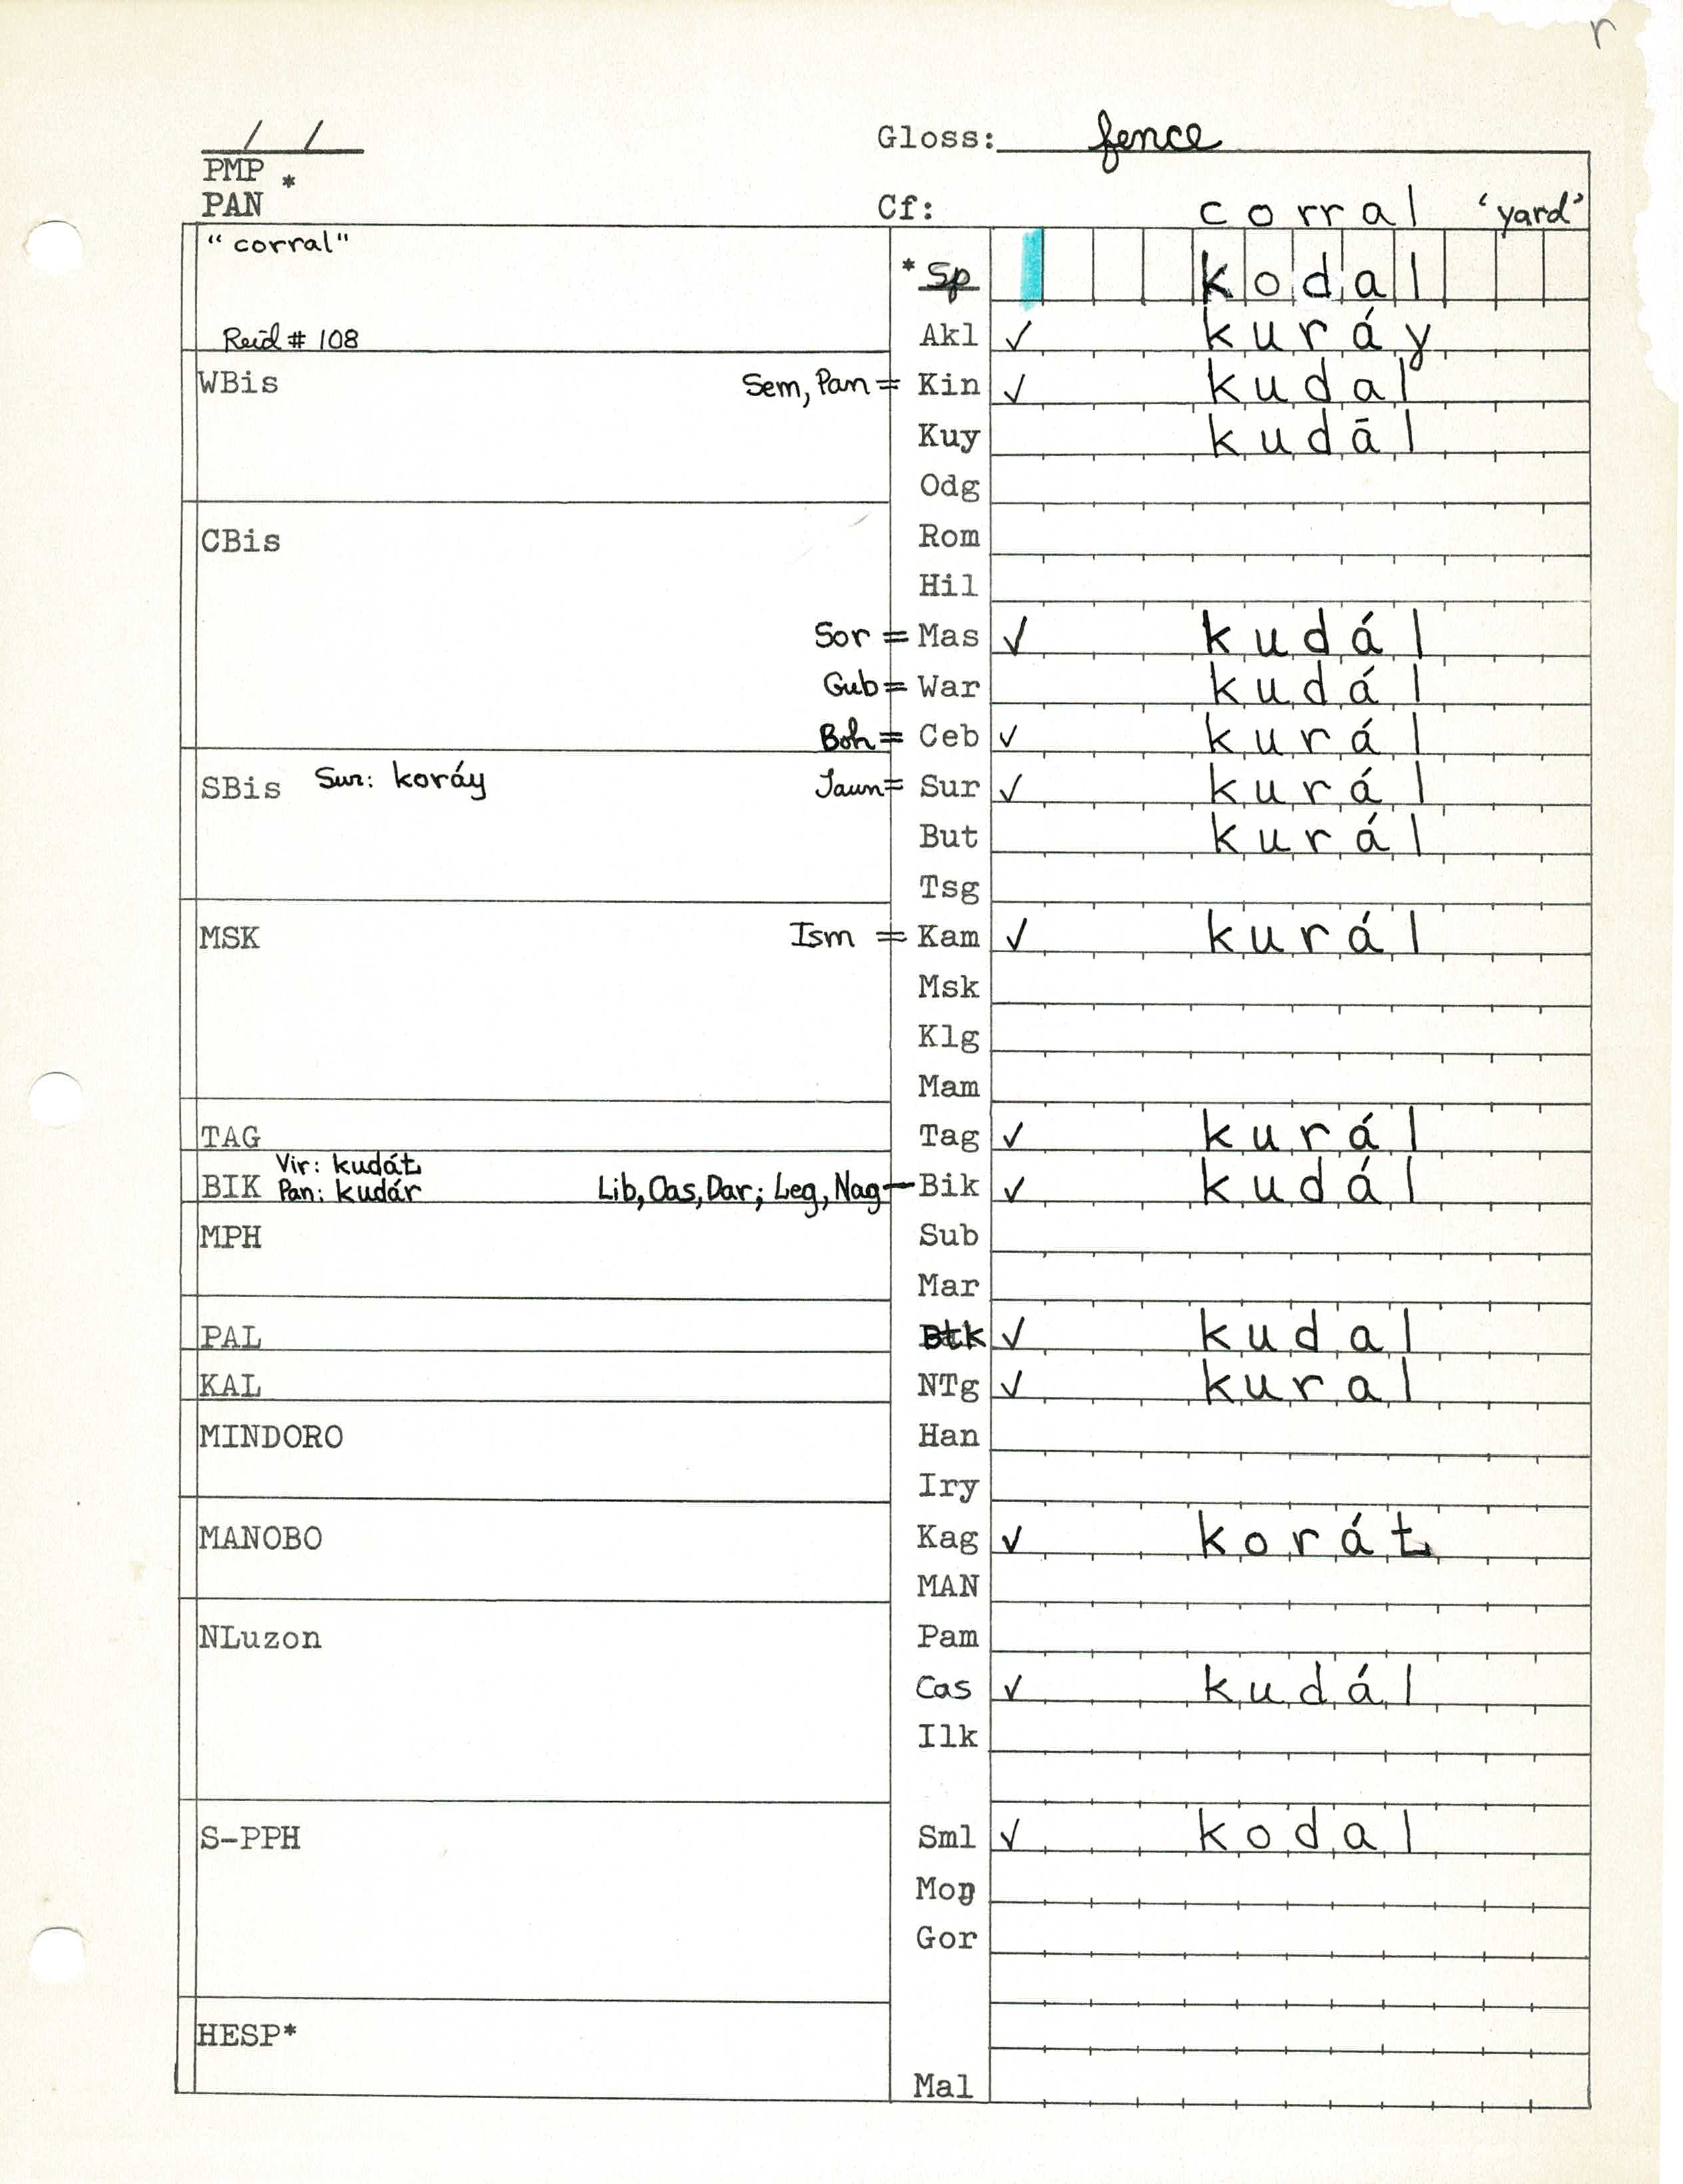 r
/ /
Gloss: fence
PMP *
PAN
Cf: corral 'yard'
"corral"
* Sp kodal
Reid # 108
Akl ✓ kuráy
WBis Sem, Pan = Kin ✓ kudal
Kuy kudāl
Odg
CBis Rom
Hil
Sor = Mas ✓ kudál
Gub = War kudál
Boh = Ceb ✓ kurál
SBis Sur: koráy Jaun = Sur ✓ kurál
But kurál
Tsg
MSK Ism = Kam ✓ kurál
Msk
Klg
Mam
TAG Tag ✓ kurál
Vir: kudát
BIK Pan: kudár Lib, Oas, Dar; Leg, Nag — Bik ✓ kudál
MPH Sub
Mar
PAL Btk ✓ kudal
KAL NTg ✓ kural
MINDORO Han
Iry
MANOBO Kag ✓ korát
MAN
NLuzon Pam
Cas ✓ kudál
Ilk
S-PPH Sml ✓ kodal
Moŋ
Gor
HESP*
Mal